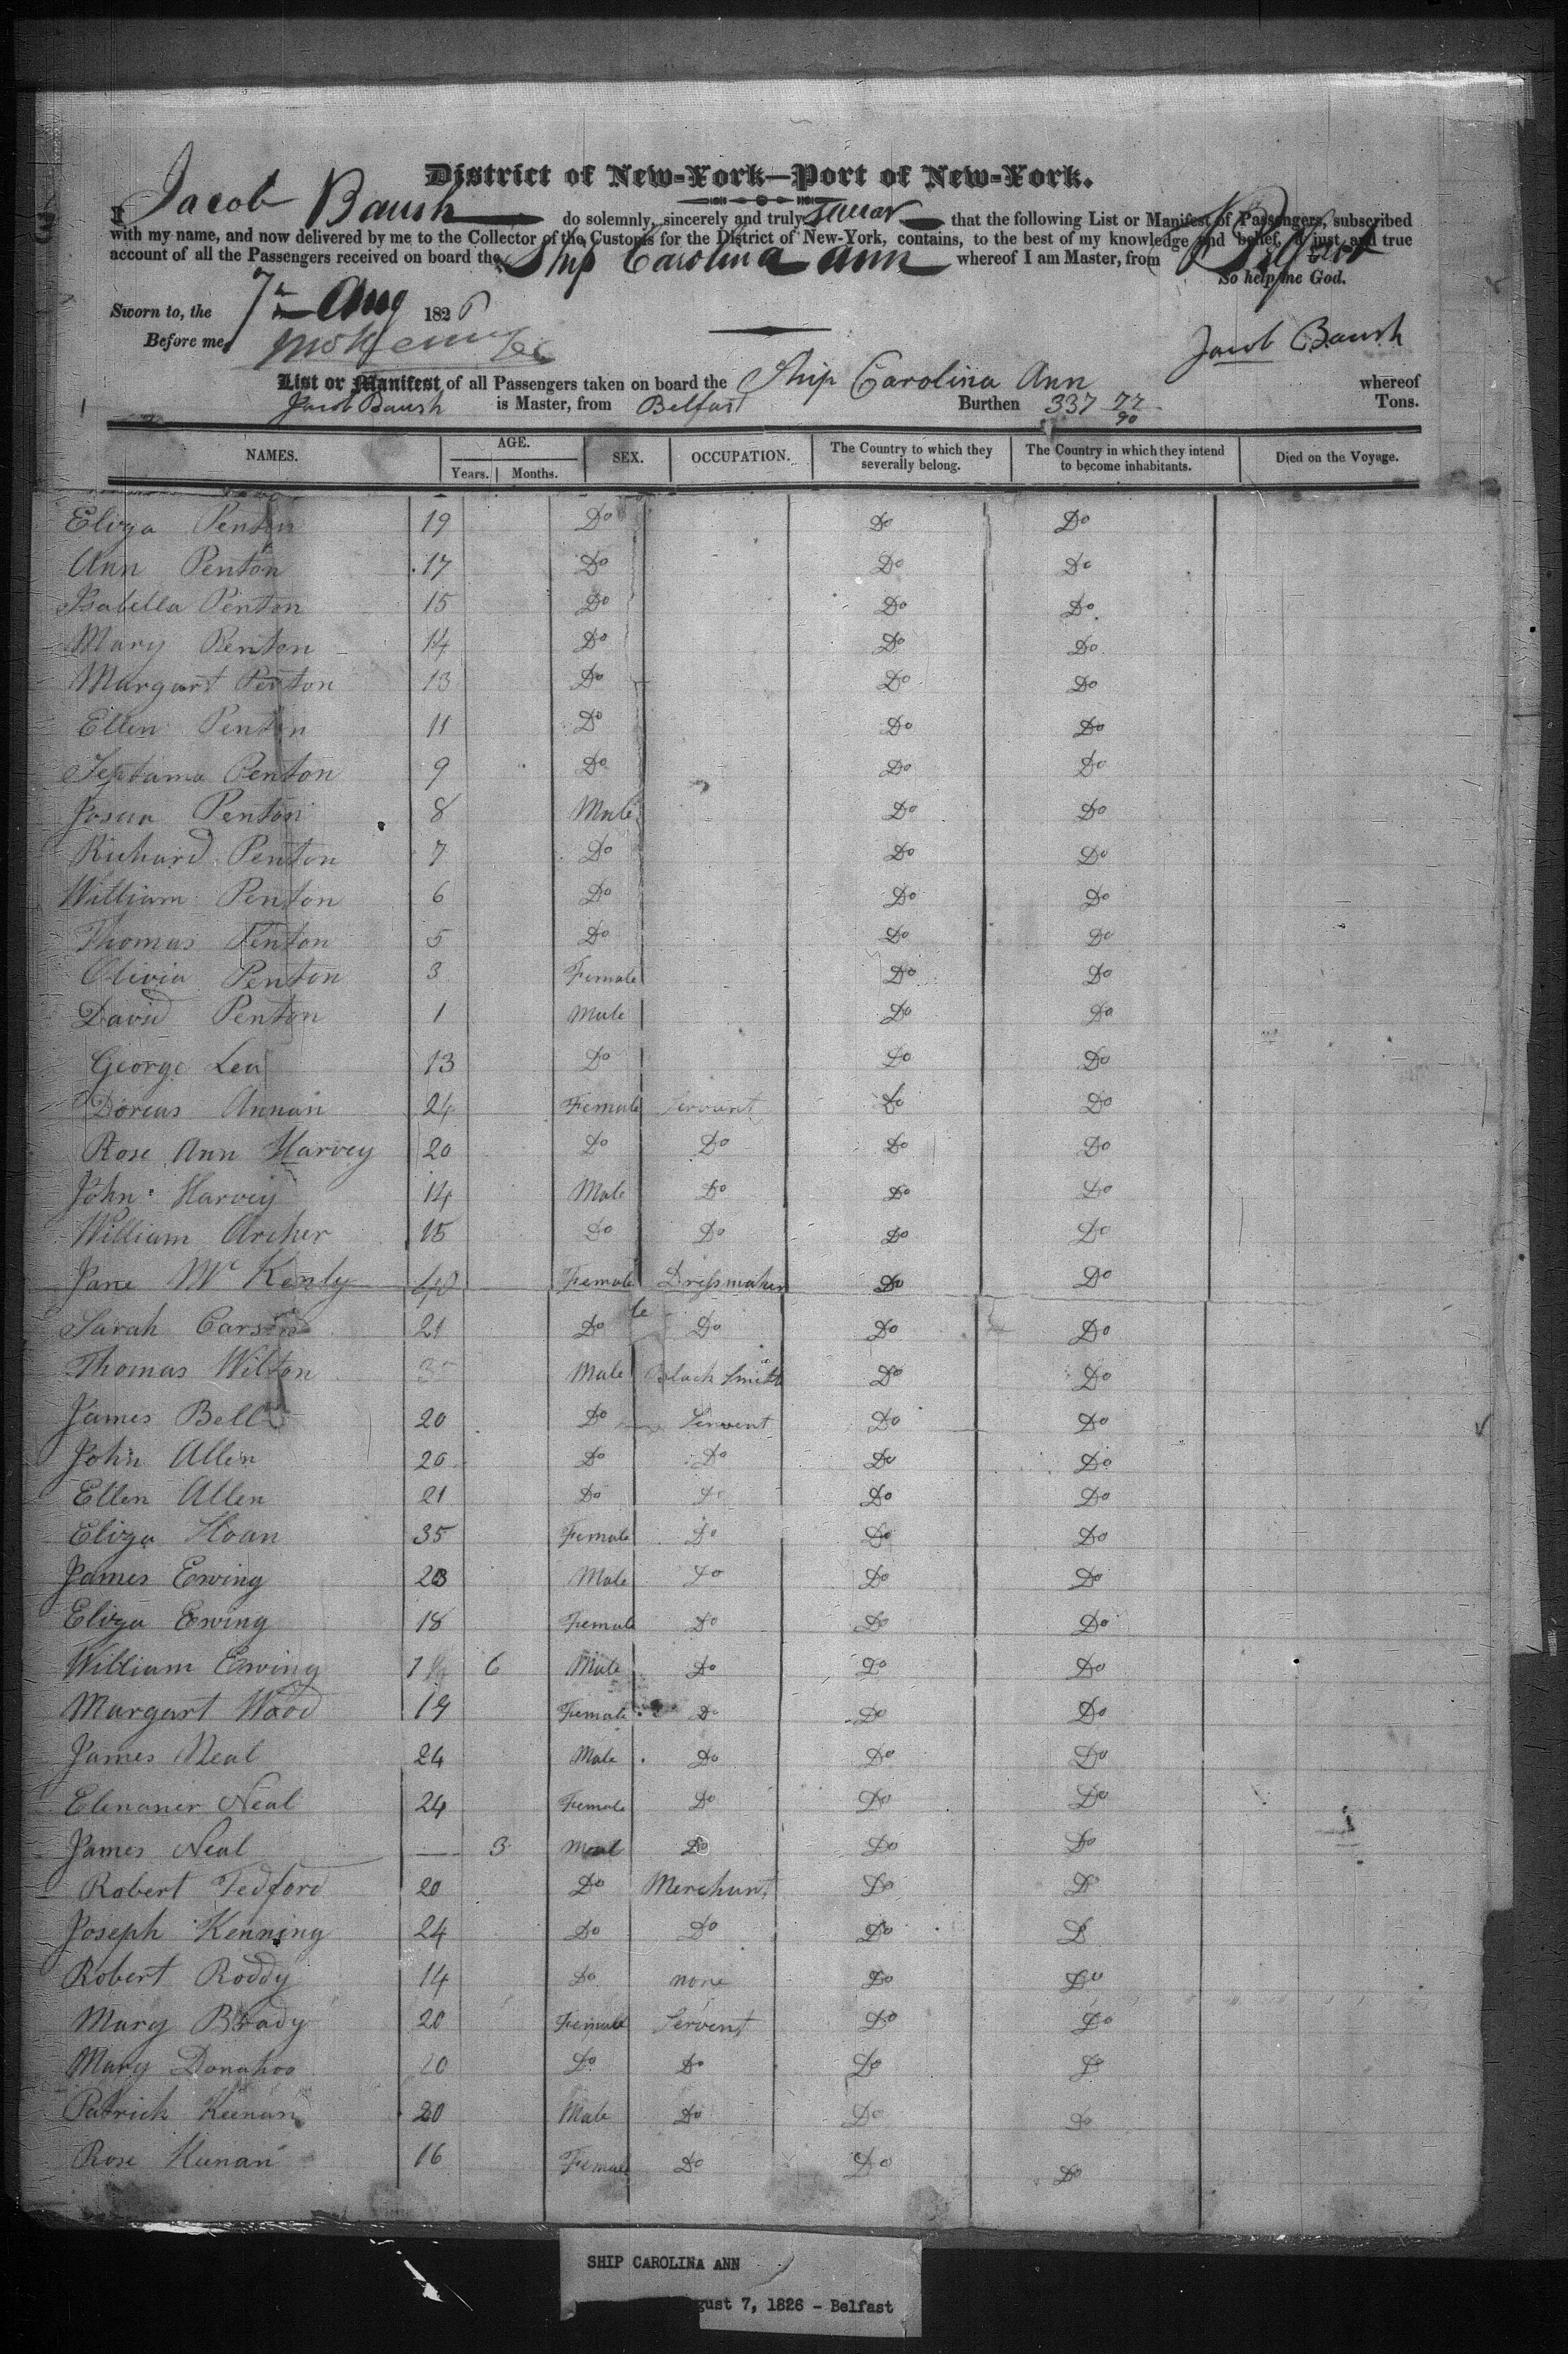 District of New-York—Port of New-York.
I Jacob Baush do solemnly, sincerely and truly swear that the following List or Manifest of Passengers, subscribed
with my name, and now delivered by me to the Collector of the Customs for the District of New-York, contains, to the best of my knowledge and belief, a just and true
account of all the Passengers received on board the Ship Carolina Ann whereof I am Master, from Belfast
So help me God.
Sworn to, the 7th Aug 1826
Before me,
Jacob Baush
List or Manifest of all Passengers taken on board the Ship Carolina Ann whereof
Jacob Baush is Master, from Belfast Burthen 337 77/90 Tons.
NAMES. AGE. Years. Months. SEX. OCCUPATION. The Country to which they severally belong. The Country in which they intend to become inhabitants. Died on the Voyage.
Eliza Penton 19 Do Do Do
Ann Penton 17 Do Do Do
Isabella Penton 15 Do Do Do
Mary Penton 14 Do Do Do
Margart Penton 13 Do Do Do
Ellen Penton 11 Do Do Do
Septama Penton 9 Do Do Do
Josua Penton 8 Male Do Do
Richard Penton 7 Do Do Do
William Penton 6 Do Do Do
Thomas Penton 5 Do Do Do
Olivia Penton 3 Female Do Do
David Penton 1 Male Do Do
George Lea 13 Do Do Do
Dorcas Annan 24 Female Servant Do Do
Rose Ann Harvey 20 Do Do Do Do
John Harvey 14 Male Do Do Do
William Archer 15 Do Do Do Do
Jane Mc Kenly 40 Female Dressmaker Do Do
Sarah Carson 21 Do Do Do Do
Thomas Wilton 35 Male Black Smith Do Do
James Bell 20 Do Servent Do Do
John Allen 20 Do Do Do Do
Ellen Allen 21 Do Do Do Do
Eliza Sloan 35 Female Do Do Do
James Ewing 23 Male Do Do Do
Eliza Ewing 18 Female Do Do Do
William Ewing 1 6 Male Do Do Do
Margart Wood 19 Female Do Do Do
James Neal 24 Male Do Do Do
Elenaner Neal 24 Female Do Do Do
James Neal — 3 Meal Do Do Do
Robert Tedford 20 Do Merchant Do Do
Joseph Kenning 24 Do Do Do D
Robert Roddy 14 Do none Do Do
Mary Brady 20 Female Servent Do Do
Mary Donahoo 20 Do Do Do Do
Patrick Keenan 20 Male Do Do Do
Rose Keenan 16 Female Do Do Do
SHIP CAROLINA ANN
gust 7, 1826 - Belfast